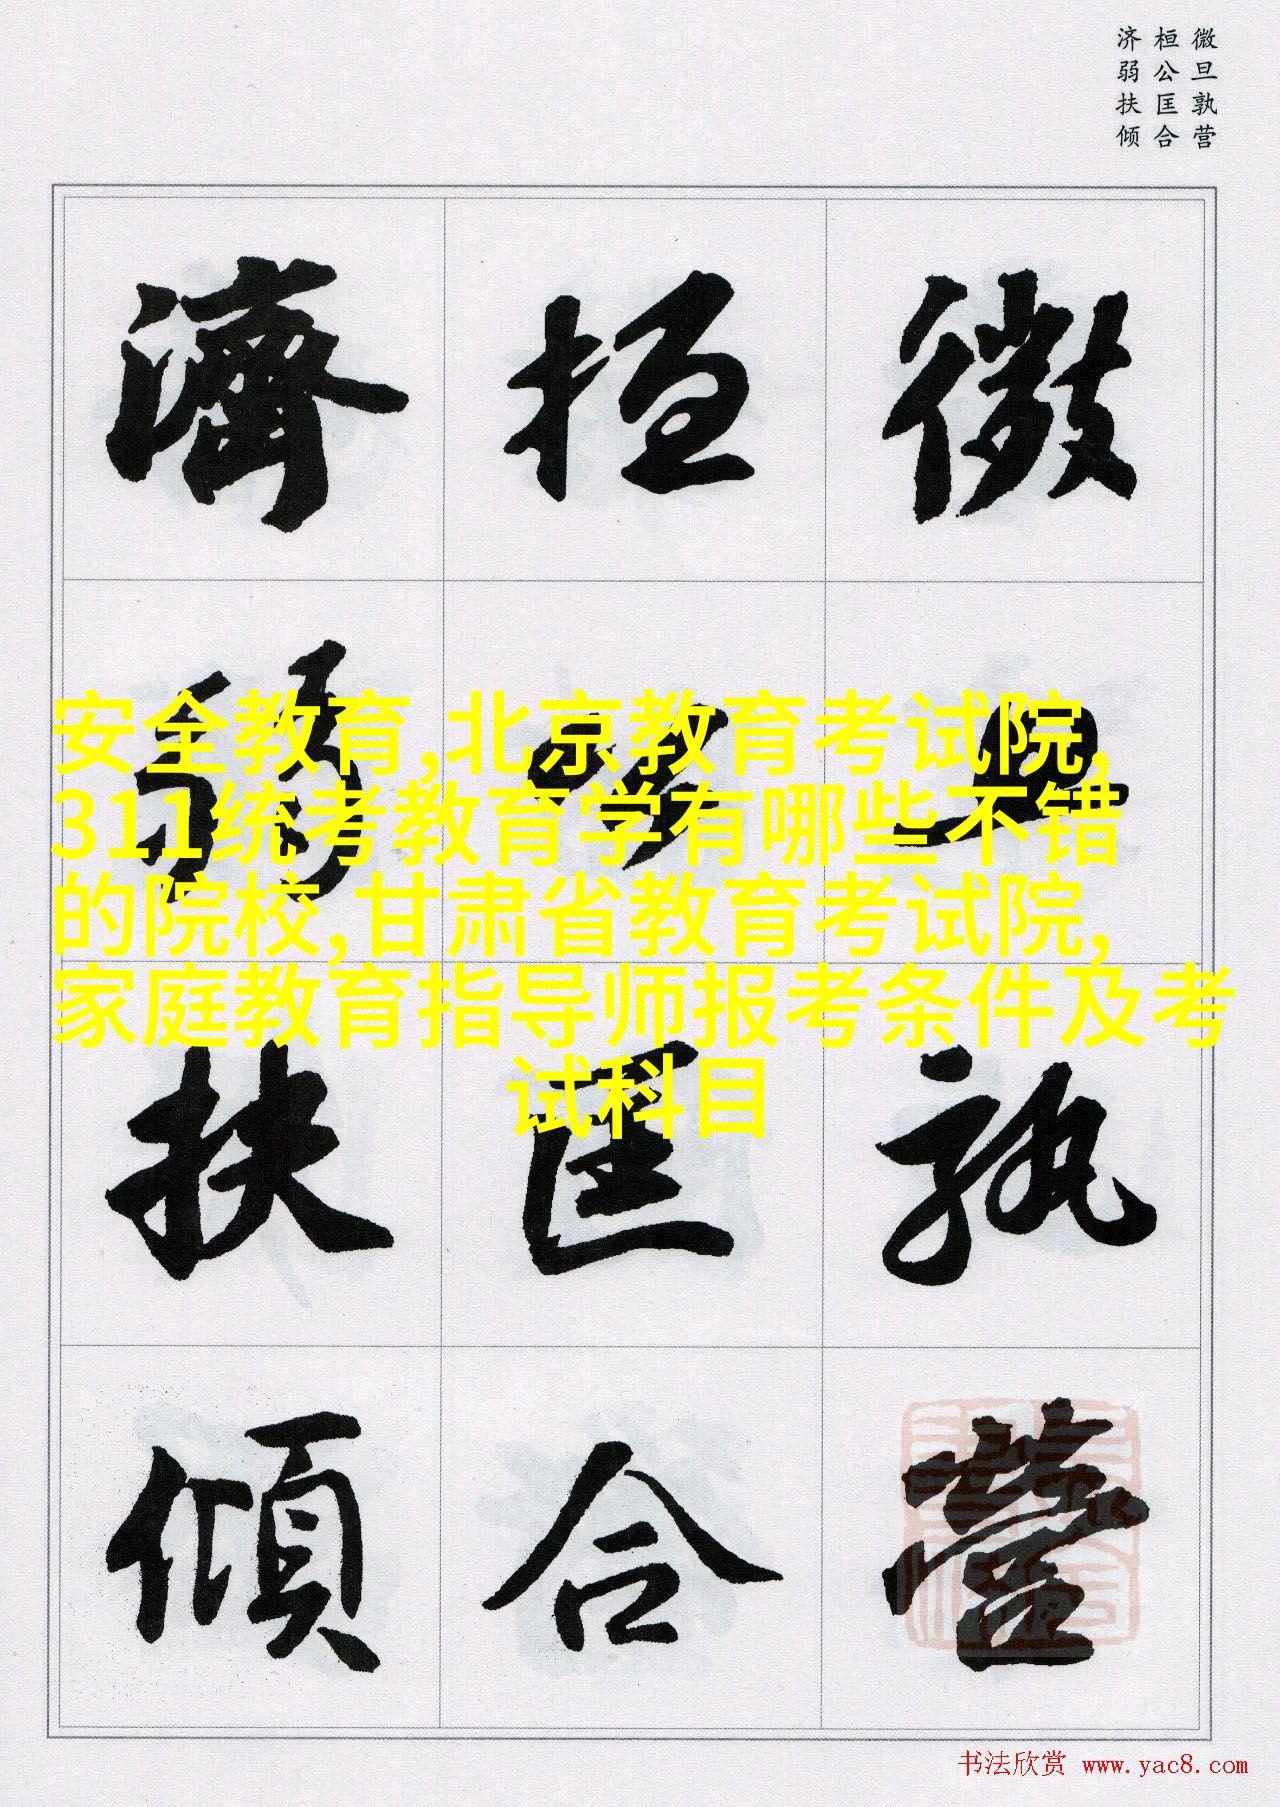 微旦孰营
桓公匡合
济弱扶倾
微旦孰營
桓公匡合
濟弱扶傾
安全教育,北京教育考试院,
311统考教育学有哪些不错
的院校,甘肃省教育考试院,
家庭教育指导师报考条件及考
试科目
书法欣赏 www.yac8.com